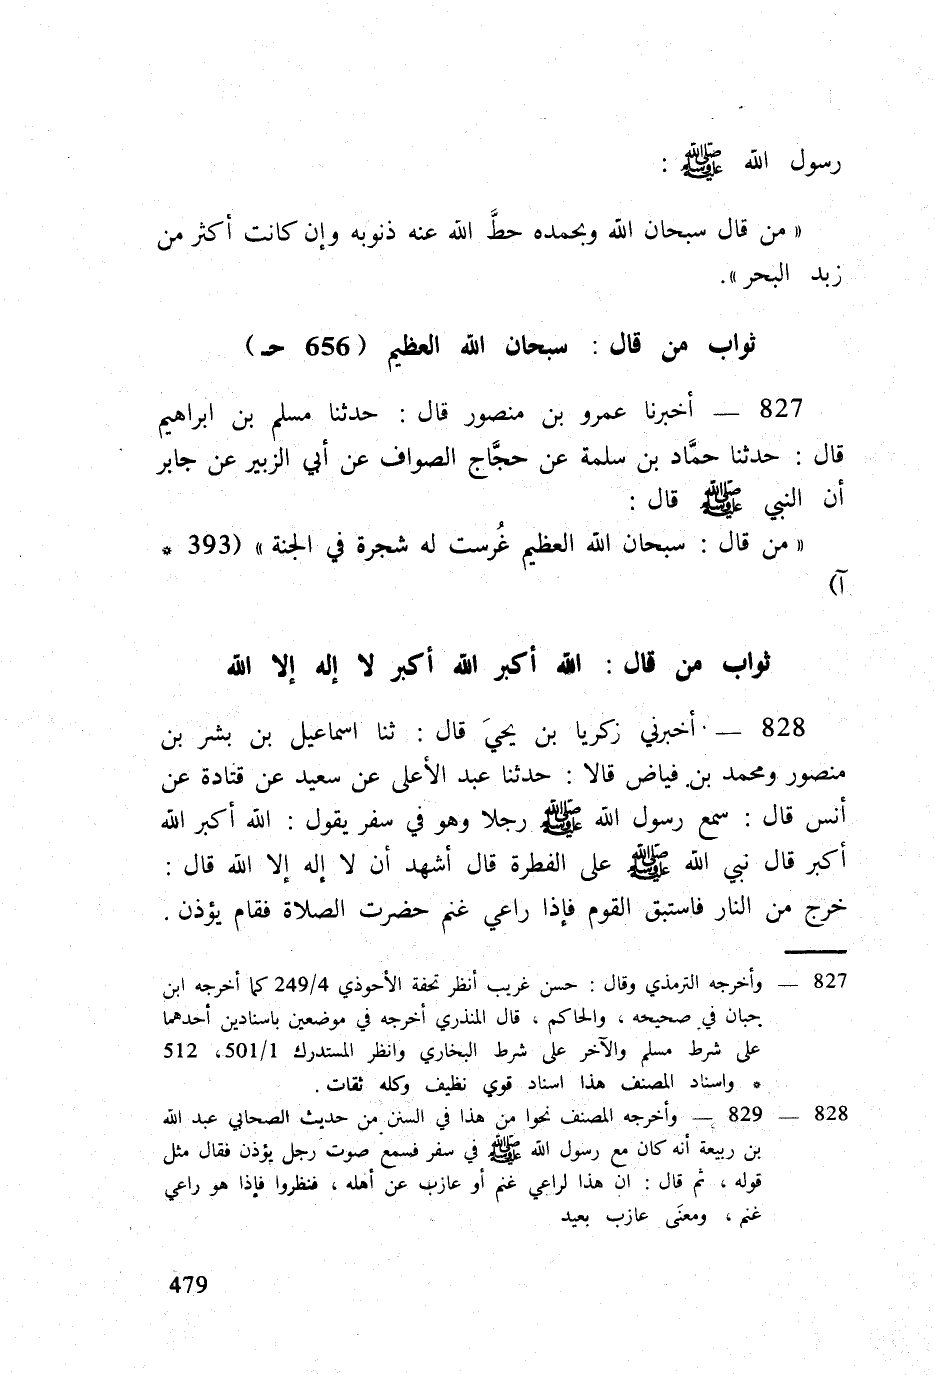 رسول الله ﷺ :
« من قال سبحان الله وبحمده حطَّ الله عنه ذنوبه وإن كانت أكثر من
زبد البحر ».
ثواب من قال : سبحان الله العظيم ( 656 حـ )
827 — أخبرنا عمرو بن منصور قال : حدثنا مسلم بن ابراهيم
قال : حدثنا حمَّاد بن سلمة عن حجَّاج الصواف عن أبي الزبير عن جابر
أن النبي ﷺ قال :
« من قال : سبحان الله العظيم غُرست له شجرة في الجنة » (393 *
آ)
ثواب من قال : الله أكبر الله أكبر لا إله إلا الله
828 — أخبرني زكريا بن يحيَ قال : ثنا اسماعيل بن بشر بن
منصور ومحمد بن فياض قالا : حدثنا عبد الأعلى عن سعيد عن قتادة عن
أنس قال : سمع رسول الله ﷺ رجلا وهو في سفر يقول : الله أكبر الله
أكبر قال نبي الله ﷺ على الفطرة قال أشهد أن لا إله إلا الله قال :
خرج من النار فاستبق القوم فإذا راعي غنم حضرت الصلاة فقام يؤذن .
827 — وأخرجه الترمذي وقال : حسن غريب أنظر تحفة الأحوذي 249/4 كما أخرجه ابن
حبان في صحيحه ، والحاكم ، قال المنذري أخرجه في موضعين باسنادين أحدهما
على شرط مسلم والآخر على شرط البخاري وانظر المستدرك 501/1، 512
* واسناد المصنف هذا اسناد قوي نظيف وكله ثقات .
828 — 829 — وأخرجه المصنف نحوا من هذا في السنن من حديث الصحابي عبد الله
بن ربيعة أنه كان مع رسول الله ﷺ في سفر فسمع صوت رجل يؤذن فقال مثل
قوله ، ثم قال : ان هذا لراعي غنم أو عازب عن أهله ، فنظروا فإذا هو راعي
غنم ، ومعنَى عازب بعيد
479